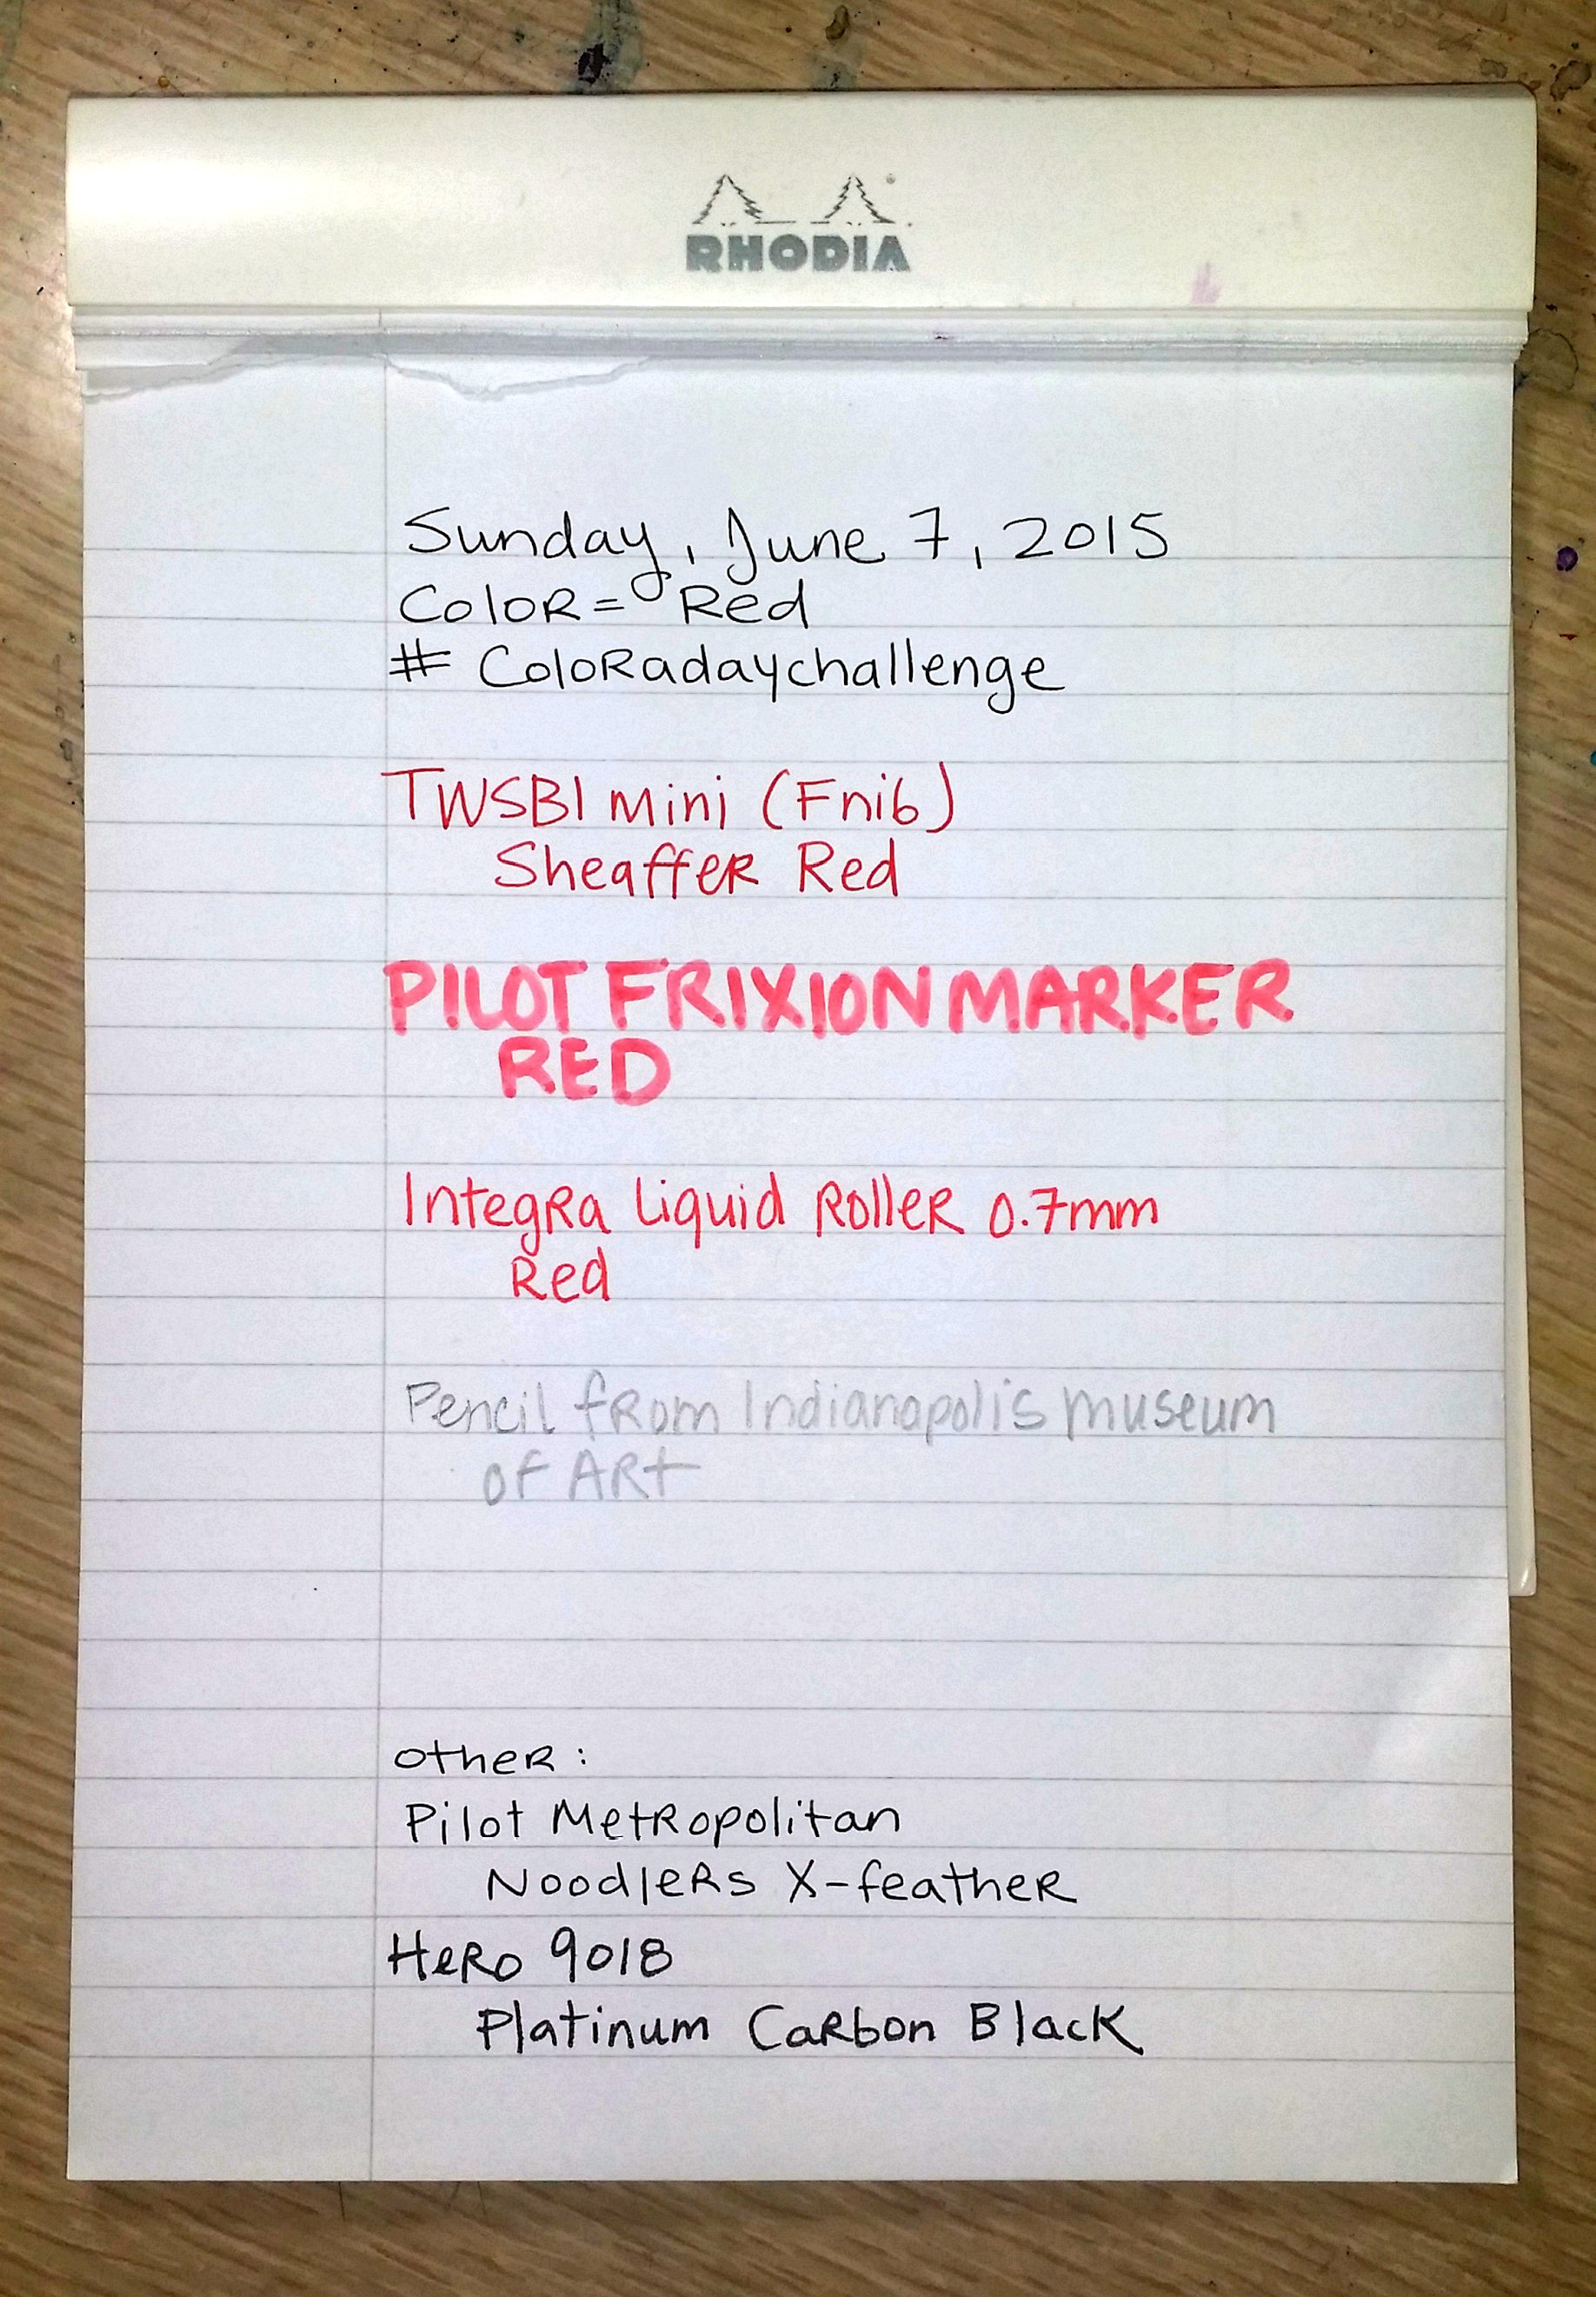 RHODIA
Sunday, June 7, 2015
Color = Red
# Coloradaychallenge
TWSBI mini (F nib)
Sheaffer Red
PILOT FRIXION MARKER
RED
Integra Liquid Roller 0.7mm
Red
Pencil from Indianapolis museum
of Art
other:
Pilot Metropolitan
Noodlers X-feather
Hero 9018
Platinum Carbon Black